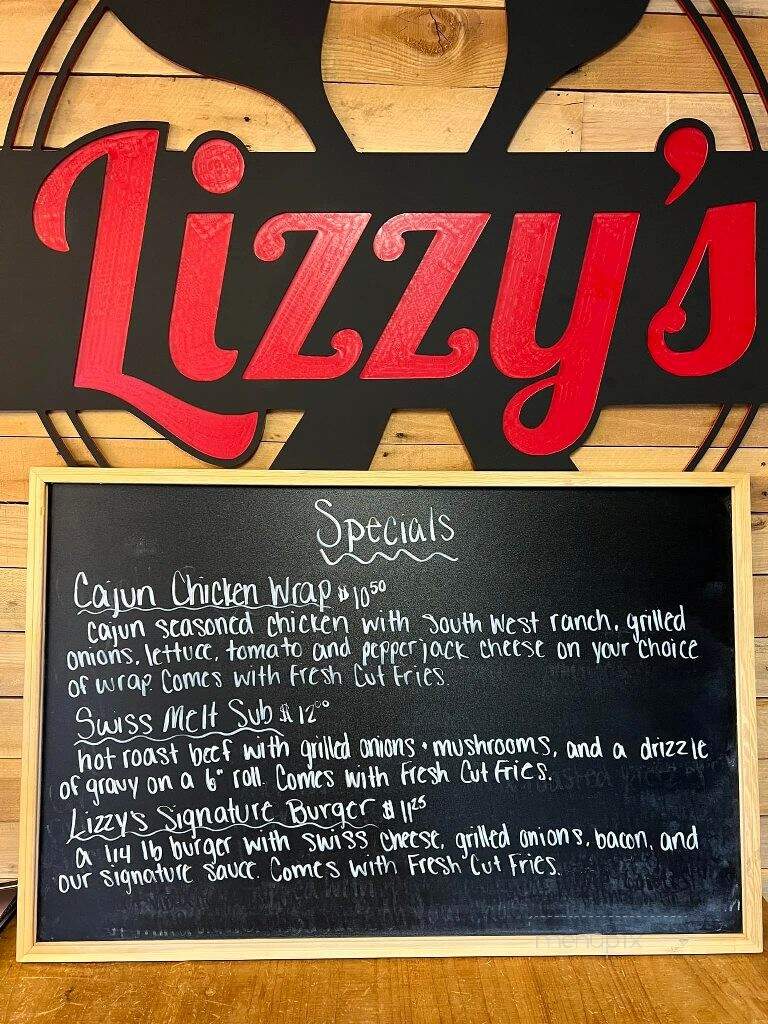 Lizzy's
Specials
Cajun Chicken Wrap $10.50
Cajun seasoned chicken with South West ranch, grilled
onions, lettuce, tomato and pepperjack cheese on your choice
of wrap. Comes with Fresh Cut Fries.
Swiss Melt Sub $12.00
hot roast beef with grilled onions + mushrooms, and a drizzle
of gravy on a 6" roll. Comes with Fresh Cut Fries.
Lizzy's Signature Burger $11.25
a 1/4 lb burger with swiss cheese, grilled onions, bacon, and
our signature sauce. Comes with Fresh Cut Fries.
menupix